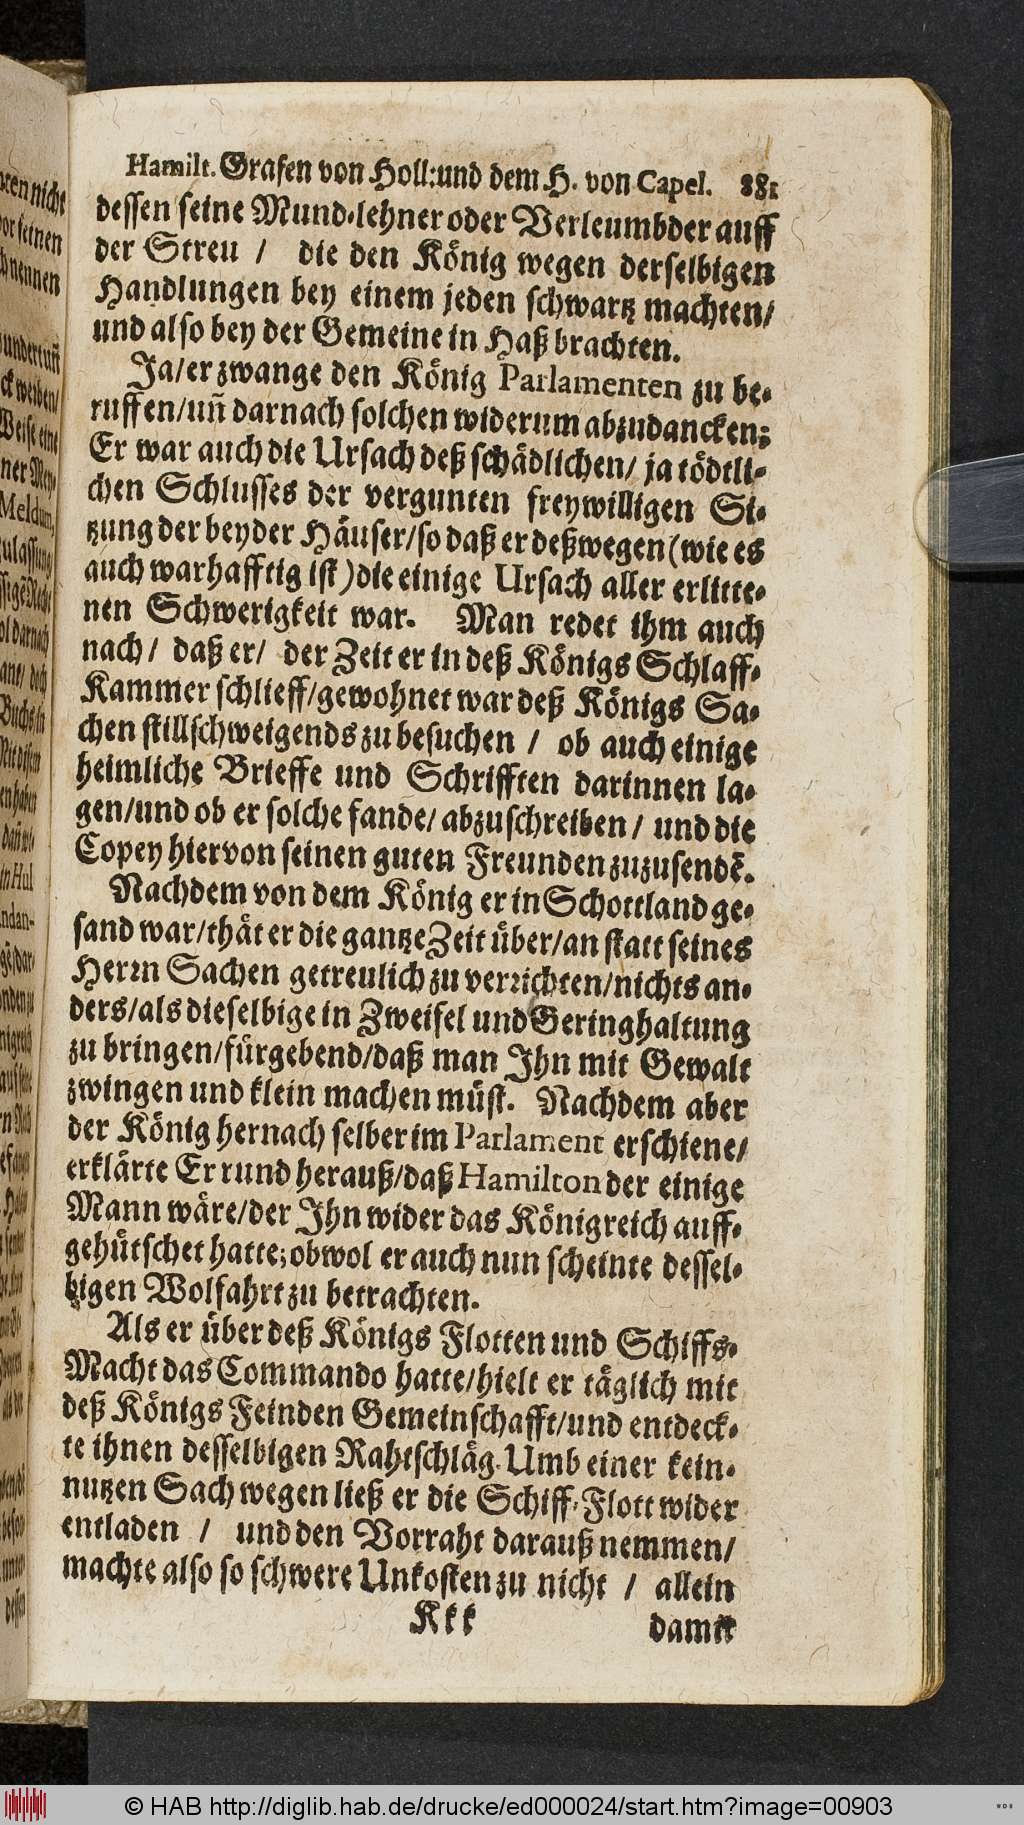 Hamilt. Grafen von Holl: und dem H. von Capel. 881
dessen seine Mund-lehner oder Verleumbder auff
der Streu / die den König wegen derselbigen
Handlungen bey einem jeden schwartz machten/
und also bey der Gemeine in Haß brachten.
Ja/er zwange den König Parlamenten zu be-
ruffen/uñ darnach solchen widerum abzudancken;
Er war auch die Ursach deß schädlichen/ ja tödtli-
chen Schlusses der vergunten freywilligen Si-
tzung der beyder Häuser/so daß er deßwegen (wie es
auch warhafftig ist) die einige Ursach aller erlitte-
nen Schwerigkeit war. Man redet ihm auch
nach/ daß er/ der Zeit er in deß Königs Schlaff-
Kammer schlieff/gewohnet war deß Königs Sa-
chen stillschweigends zu besuchen / ob auch einige
heimliche Brieffe und Schrifften darinnen la-
gen/und ob er solche fande/ abzuschreiben/ und die
Copey hiervon seinen guten Freunden zuzusendẽ.
Nachdem von dem König er in Schottland ge-
sand war/thät er die gantze Zeit über/an statt seines
Herrn Sachen getreulich zu verrichten/nichts an-
ders/als dieselbige in Zweifel und Geringhaltung
zu bringen/fürgebend/daß man Ihn mit Gewalt
zwingen und klein machen müst. Nachdem aber
der König hernach selber im Parlament erschiene/
erklärte Er rund herauß/daß Hamilton der einige
Mann wäre/der Ihn wider das Königreich auff-
gehütschet hatte; obwol er auch nun scheinte dessel-
bigen Wolfahrt zu betrachten.
Als er über deß Königs Flotten und Schiffs-
Macht das Commando hatte/hielt er täglich mit
deß Königs Feinden Gemeinschafft/und entdeck-
te ihnen desselbigen Rahtschläg. Umb einer kein-
nutzen Sach wegen ließ er die Schiff-Flott wider
entladen / und den Vorraht darauß nemmen/
machte also so schwere Unkosten zu nicht / allein
Kkk damit
© HAB http://diglib.hab.de/drucke/ed000024/start.htm?image=00903